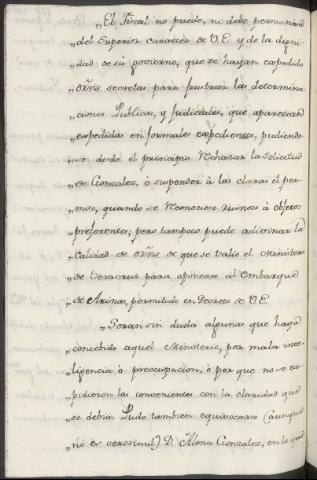 „El Fiscal no puede, ni debe persuadirse
„del Superior caracter de V.E. y de la digni
„dad de su govierno, que se hayan expedido
„orñs secretas para frustrar las determina
„ciones Publicas, y Judiciales, que aparezcan
„expedidas en formales expedientes, pudiendo
„se desde el principio rechazar la solicitud
„de Gonzalez, ò suspender à las claras el per
„miso, quando se reconociese ruinoso à objetos
„preferentes; pero tampoco puede adivinar la
„calidad de orñs de que se valió el Ministerio
„de Veracruz para oponerse al embarque
„de Arinas, permitido en Decreto de V.E.
„Seran sin duda algunas que haya
„concebido aquel Ministerio, por mala inte
„ligencia ò preocupacion, ò por que no se ex
„pidieron las convenientes con la claridad que
„se debia. Pudo tambien equivocarse (aunque
„no es verosimil) D. Alonso Gonzalez, en lo que